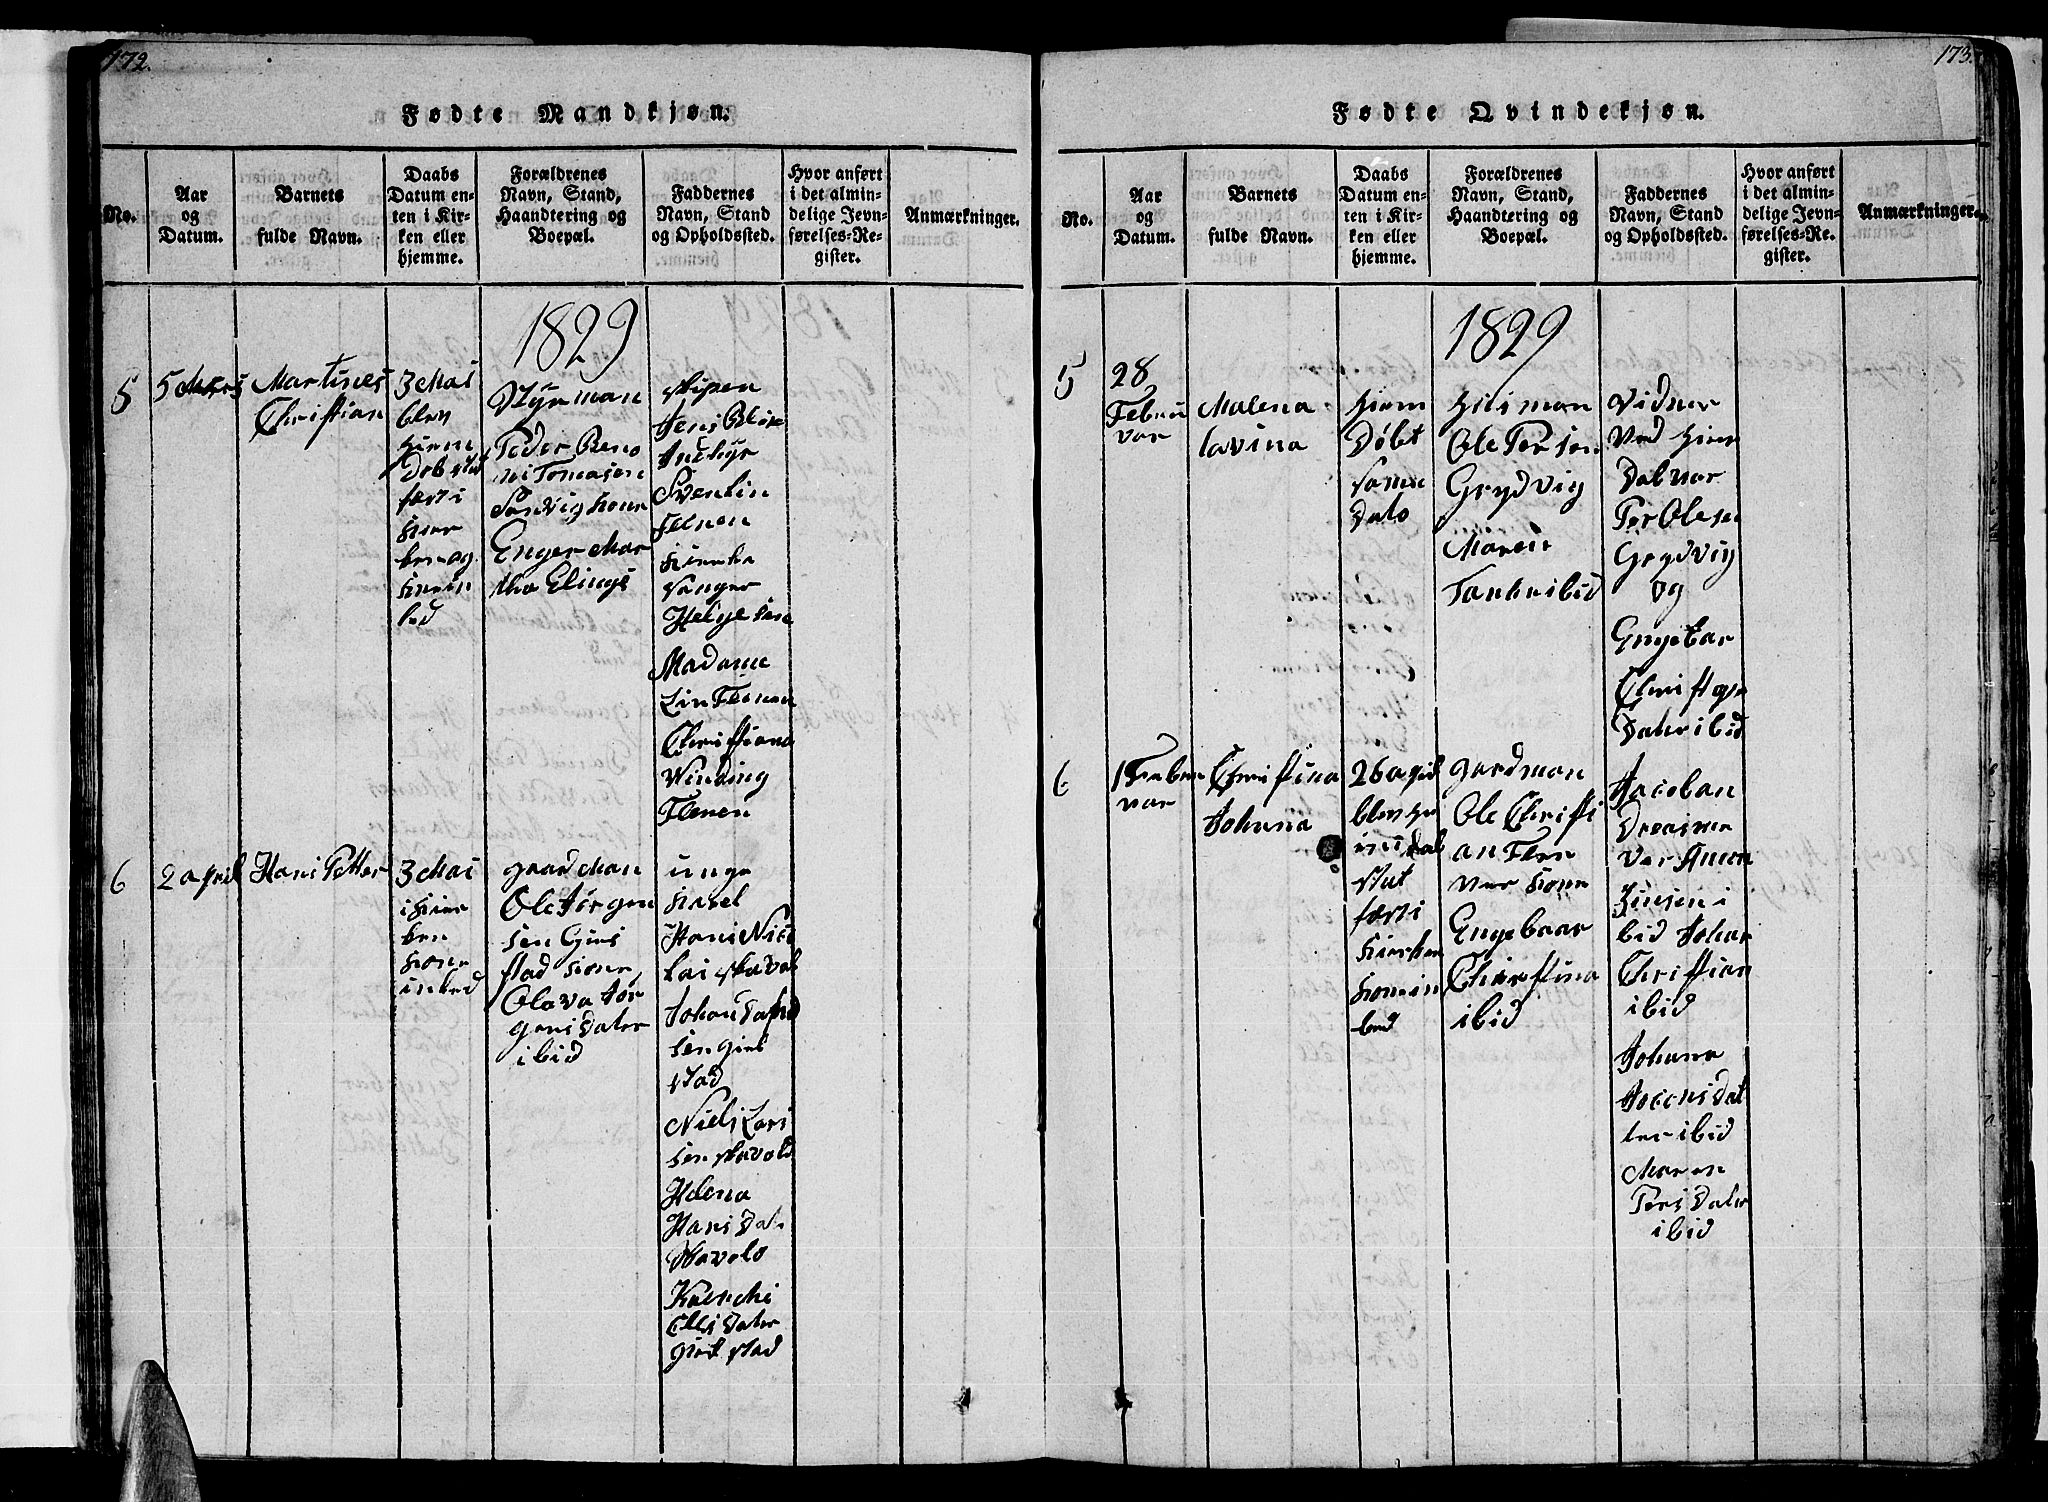 172.
Fødte Mandkjøn.
No.
Aar
og
Datum.
Barnets
fulde Navn.
Daabs
Datum en-
ten i Kir-
ken eller
hjemme.
Forældrenes
Navn, Stand,
Haandtering og
Boepæl.
Faddernes
Navn, Stand
og Opholdssted.
Hvor anført
i det almin-
delige Jevn-
førelses-Re-
gister.
Anmærkninger.
1829
5
5 Mars
Martines
Christian
3 Mai
blev
hiem
Døb stad
fæst i
kier
ken og
ko in
led
Styrman
Peder Beno
ni Tomasen
Sandvig kone
Enger Mar
tha Elings
skipen
Jens
Svenlin
Femen
kierke
sanger
Helgesen
Madame
Lin Femen
Christiana
Winding
Femen
6
2 april
Hans Petter
3 Mai
i kier
ken
kone
in led
gaardman
Ole Jørgen
sen Gies
stad kone
Olava Jør
gens dater
ibid
unge
karel
Hans Nico
lai skavol
Johan
sen giel
stad
Niels Lars
sen skavold
Helena
Hans Dat
skavold
Karen
Ells Dater
giel stad
173.
Fødte Qvindekjøn.
No.
Aar
og
Datum.
Barnets
fulde Navn.
Daabs
Datum en-
ten i Kir-
ken eller
hjemme.
Forældrenes
Navn, Stand,
Haandtering og
Boepæl.
Faddernes
Navn, Stand
og Opholdssted.
Hvor anført
i det almin-
delige Jevn-
førelses-Re-
gister.
Anmærkninger.
1829
5
28
Febru
var
Malena
lavina
hiem
Døbt
samme
Dato
Husman
Ole Persen
Grydvig
Maren
ibid
Vidner
ved hiem
Dab var
Per Olesen
Grydvig
og
Engebar
Christen
Dater ibid
6
1 Febru
var
Christina
Johana
26 april
blev hi
stat
fæst i
kierken
kone in
led
gardman
Ole Christi
an Flen
vær kone
Engebaar
Christina
ibid
Jacob an
Dreas
vær Anon
Jensen i
bid Johan
Christian
ibid
Johana
Jocons Dat
ter ibid
Maren
Pers Dater
ibid